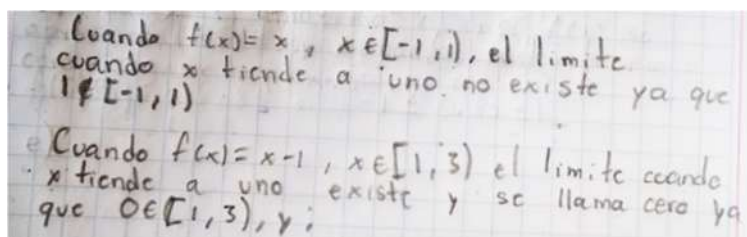 Cuando f(x)= x, x ∈ [-1,1), el limite
cuando x tiende a uno no existe ya que
1 ∉ [-1,1)
Cuando f(x)= x-1, x ∈ [1,3) el limite ccando
x tiende a uno existe y se llama cero ya
que 0 ∈ [1,3), y;